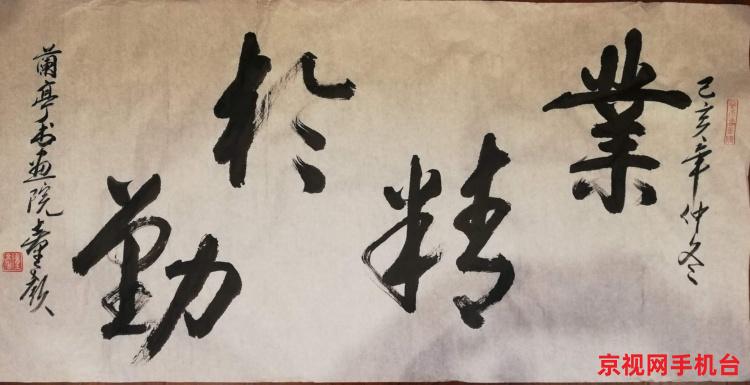 己亥年仲冬
業精於勤
蘭亭书画院童毅
京视网手机台